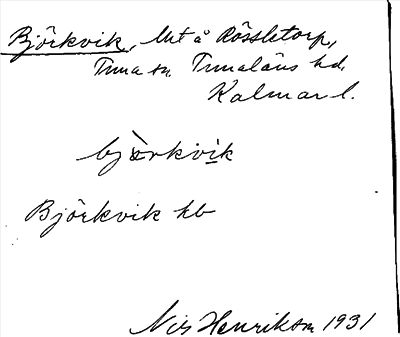 Björkvik, lht å Rössletorp,
Tuna sn. Tunaläns hd.
Kalmar l.
bjö̀rkvik
Björkvik kb
Nils Henrikson 1931